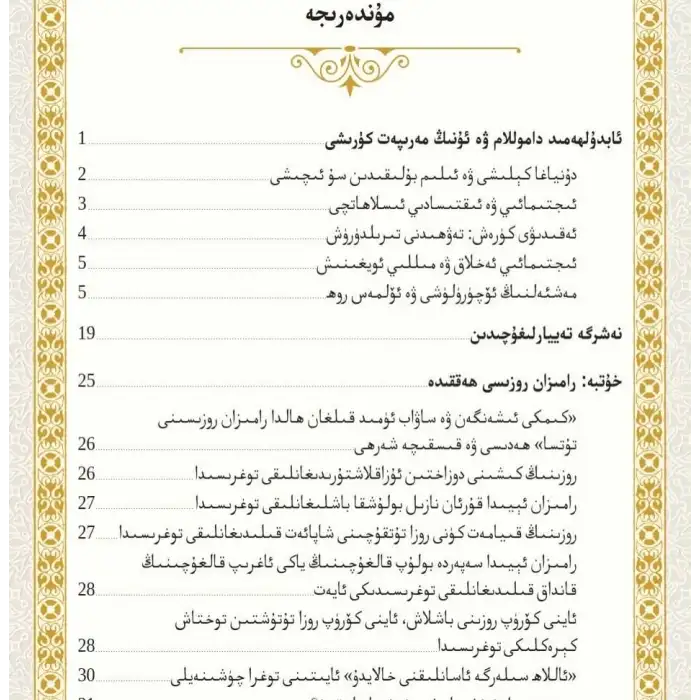 مۇندەرىجە
ئابدۇلھەمىد داموللام ۋە ئۇنىڭ مەرىپەت كۈرىشى 1
دۇنياغا كېلىشى ۋە ئىلىم بۇلىقىدىن سۇ ئىچىشى 2
ئىجتىمائىي ۋە ئىقتىسادىي ئىسلاھاتچى 3
ئەقىدىۋى كۈرەش: تەۋھىدنى تىرىلدۈرۈش 4
ئىجتىمائىي ئەخلاق ۋە مىللىي ئويغىنىش 5
مەشئەلنىڭ ئۆچۈرۈلۈشى ۋە ئۆلمەس روھ 5
نەشرگە تەييارلىغۇچىدىن 19
خۇتبە: رامىزان روزىسى ھەققىدە 25
«كىمكى ئىشەنگەن ۋە ساۋاب ئۈمىد قىلغان ھالدا رامىزان روزىسىنى
تۇتسا» ھەدىسى ۋە قىسقىچە شەرھى 26
روزىنىڭ كىشىنى دوزاختىن ئۇزاقلاشتۇرىدىغانلىقى توغرىسىدا 26
رامىزان ئېيىدا قۇرئان نازىل بولۇشقا باشلىغانلىقى توغرىسىدا 27
روزىنىڭ قىيامەت كۈنى روزا تۇتقۇچىنى شاپائەت قىلىدىغانلىقى توغرىسىدا 27
رامىزان ئېيىدا سەپەردە بولۇپ قالغۇچىنىڭ ياكى ئاغرىپ قالغۇچىنىڭ
قانداق قىلىدىغانلىقى توغرىسىدىكى ئايەت 28
ئاينى كۆرۈپ روزىنى باشلاش، ئاينى كۆرۈپ روزا تۇتۇشتىن توختاش
كېرەكلىكى توغرىسىدا 28
«ئاللاھ سىلەرگە ئاسانلىقنى خالايدۇ» ئايىتىنى توغرا چۈشىنەيلى 30